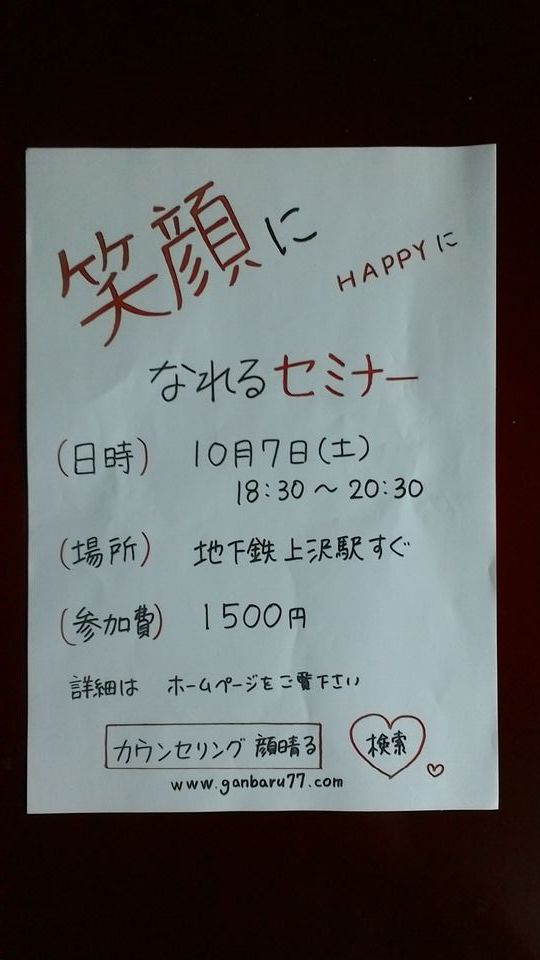 笑顔に
HAPPYに
なれるセミナー
(日時) 10月7日(土)
18:30～20:30
(場所) 地下鉄上沢駅すぐ
(参加費) 1500円
詳細は ホームページをご覧下さい
カウンセリング 顔晴る 検索
www.ganbaru77.com